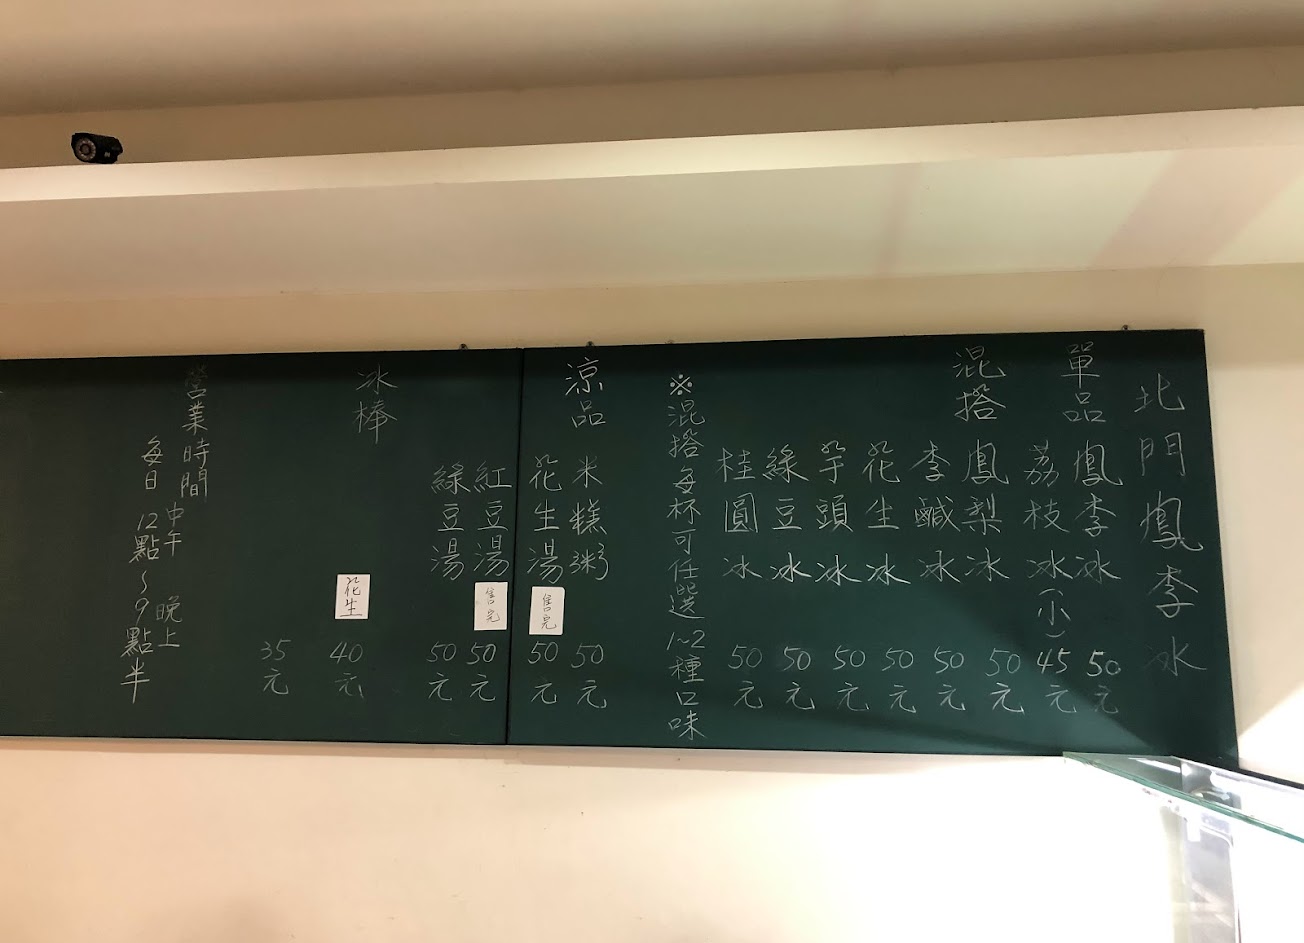 北門鳳李冰
單品 鳳李冰 50元
荔枝冰(小) 45元
混搭 鳳梨冰 50元
李鹹冰 50元
花生冰 50元
芋頭冰 50元
綠豆冰 50元
桂圓冰 50元
※混搭每杯可任選1~2種口味
涼品 米糕粥 50元
花生湯 售完 50元
紅豆湯 售完 50元
綠豆湯 50元
冰棒 花生 40元
35元
營業時間
中午 晚上
每日 12點~9點半